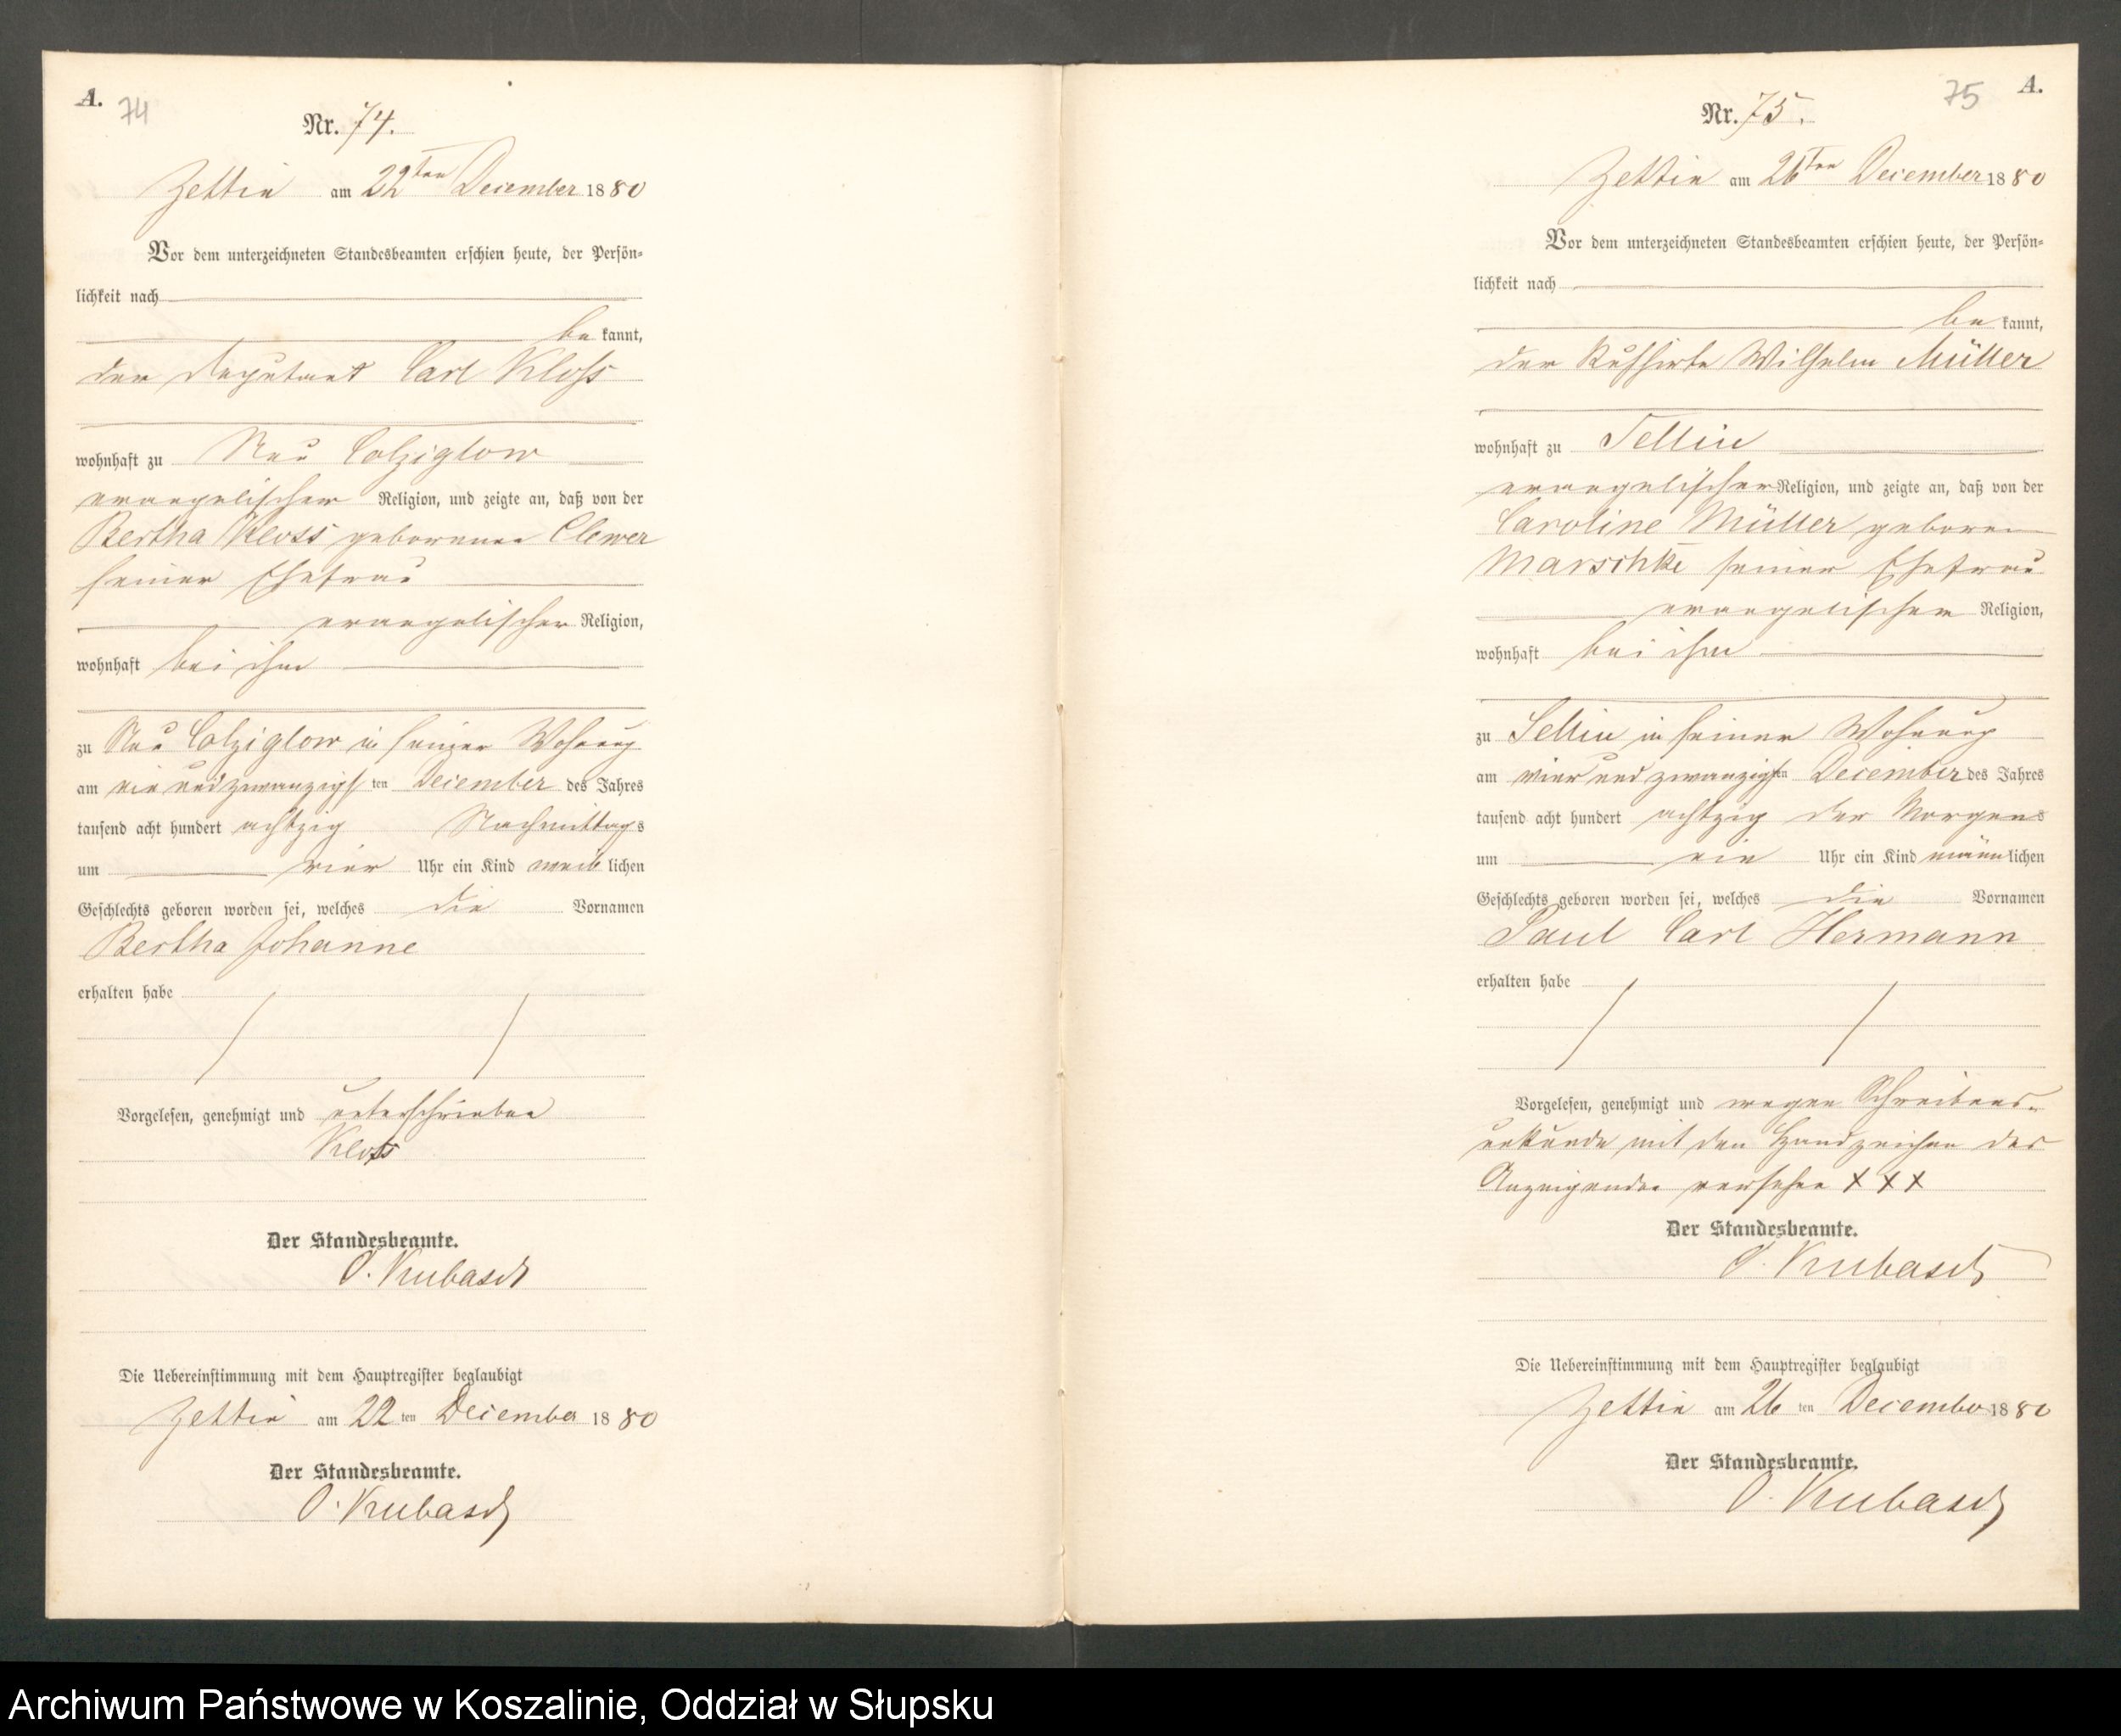 A. 74
Nr. 74.
Zettin am 22ten December 1880
Vor dem unterzeichneten Standesbeamten erschien heute, der Persön-
lichkeit nach
be kannt,
der Deputant Carl Kloss
wohnhaft zu Neu Colziglow
evangelischer Religion, und zeigte an, daß von der
Bertha Kloss geborenen Clewer
seiner Ehefrau
evangelischer Religion,
wohnhaft bei ihm
zu Neu Colziglow in seiner Wohnung
am ein und zwanzigsten December des Jahres
tausend acht hundert achtzig Nachmittags
um vier Uhr ein Kind weiblichen
Geschlechts geboren worden sei, welches die Vornamen
Bertha Johanne
erhalten habe
Vorgelesen, genehmigt und unterschrieben
Kloss
Der Standesbeamte.
O. Kubasch
Die Uebereinstimmung mit dem Hauptregister beglaubigt
Zettin am 22ten December 1880
Der Standesbeamte.
O. Kubasch
75 A.
Nr. 75.
Zettin am 26ten December 1880
Vor dem unterzeichneten Standesbeamten erschien heute, der Persön-
lichkeit nach
be kannt,
der Kuhhirte Wilhelm Müller
wohnhaft zu Sellin
evangelischer Religion, und zeigte an, daß von der
Caroline Müller geboren
Marschke seiner Ehefrau
evangelischer Religion,
wohnhaft bei ihm
zu Sellin in seiner Wohnung
am vier und zwanzigsten December des Jahres
tausend acht hundert achtzig der Morgens
um ein Uhr ein Kind männlichen
Geschlechts geboren worden sei, welches die Vornamen
Paul Carl Hermann
erhalten habe
Vorgelesen, genehmigt und wegen Schreibens-
unkunde mit den Handzeichen des
Anzeigenden versehen XXX
Der Standesbeamte.
O. Kubasch
Die Uebereinstimmung mit dem Hauptregister beglaubigt
Zettin am 26ten December 1880
Der Standesbeamte.
O. Kubasch
Archiwum Państwowe w Koszalinie, Oddział w Słupsku